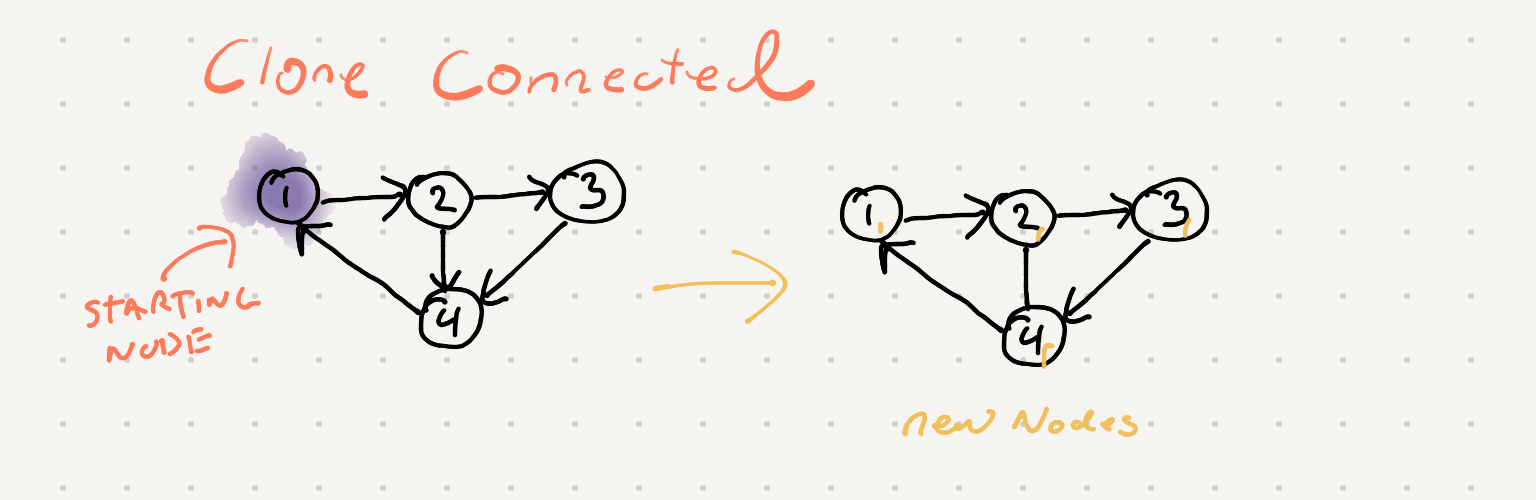 Clone Connected
1 2 3
4
STARTING
NODE
1, 2r 3r
4r
new Nodes